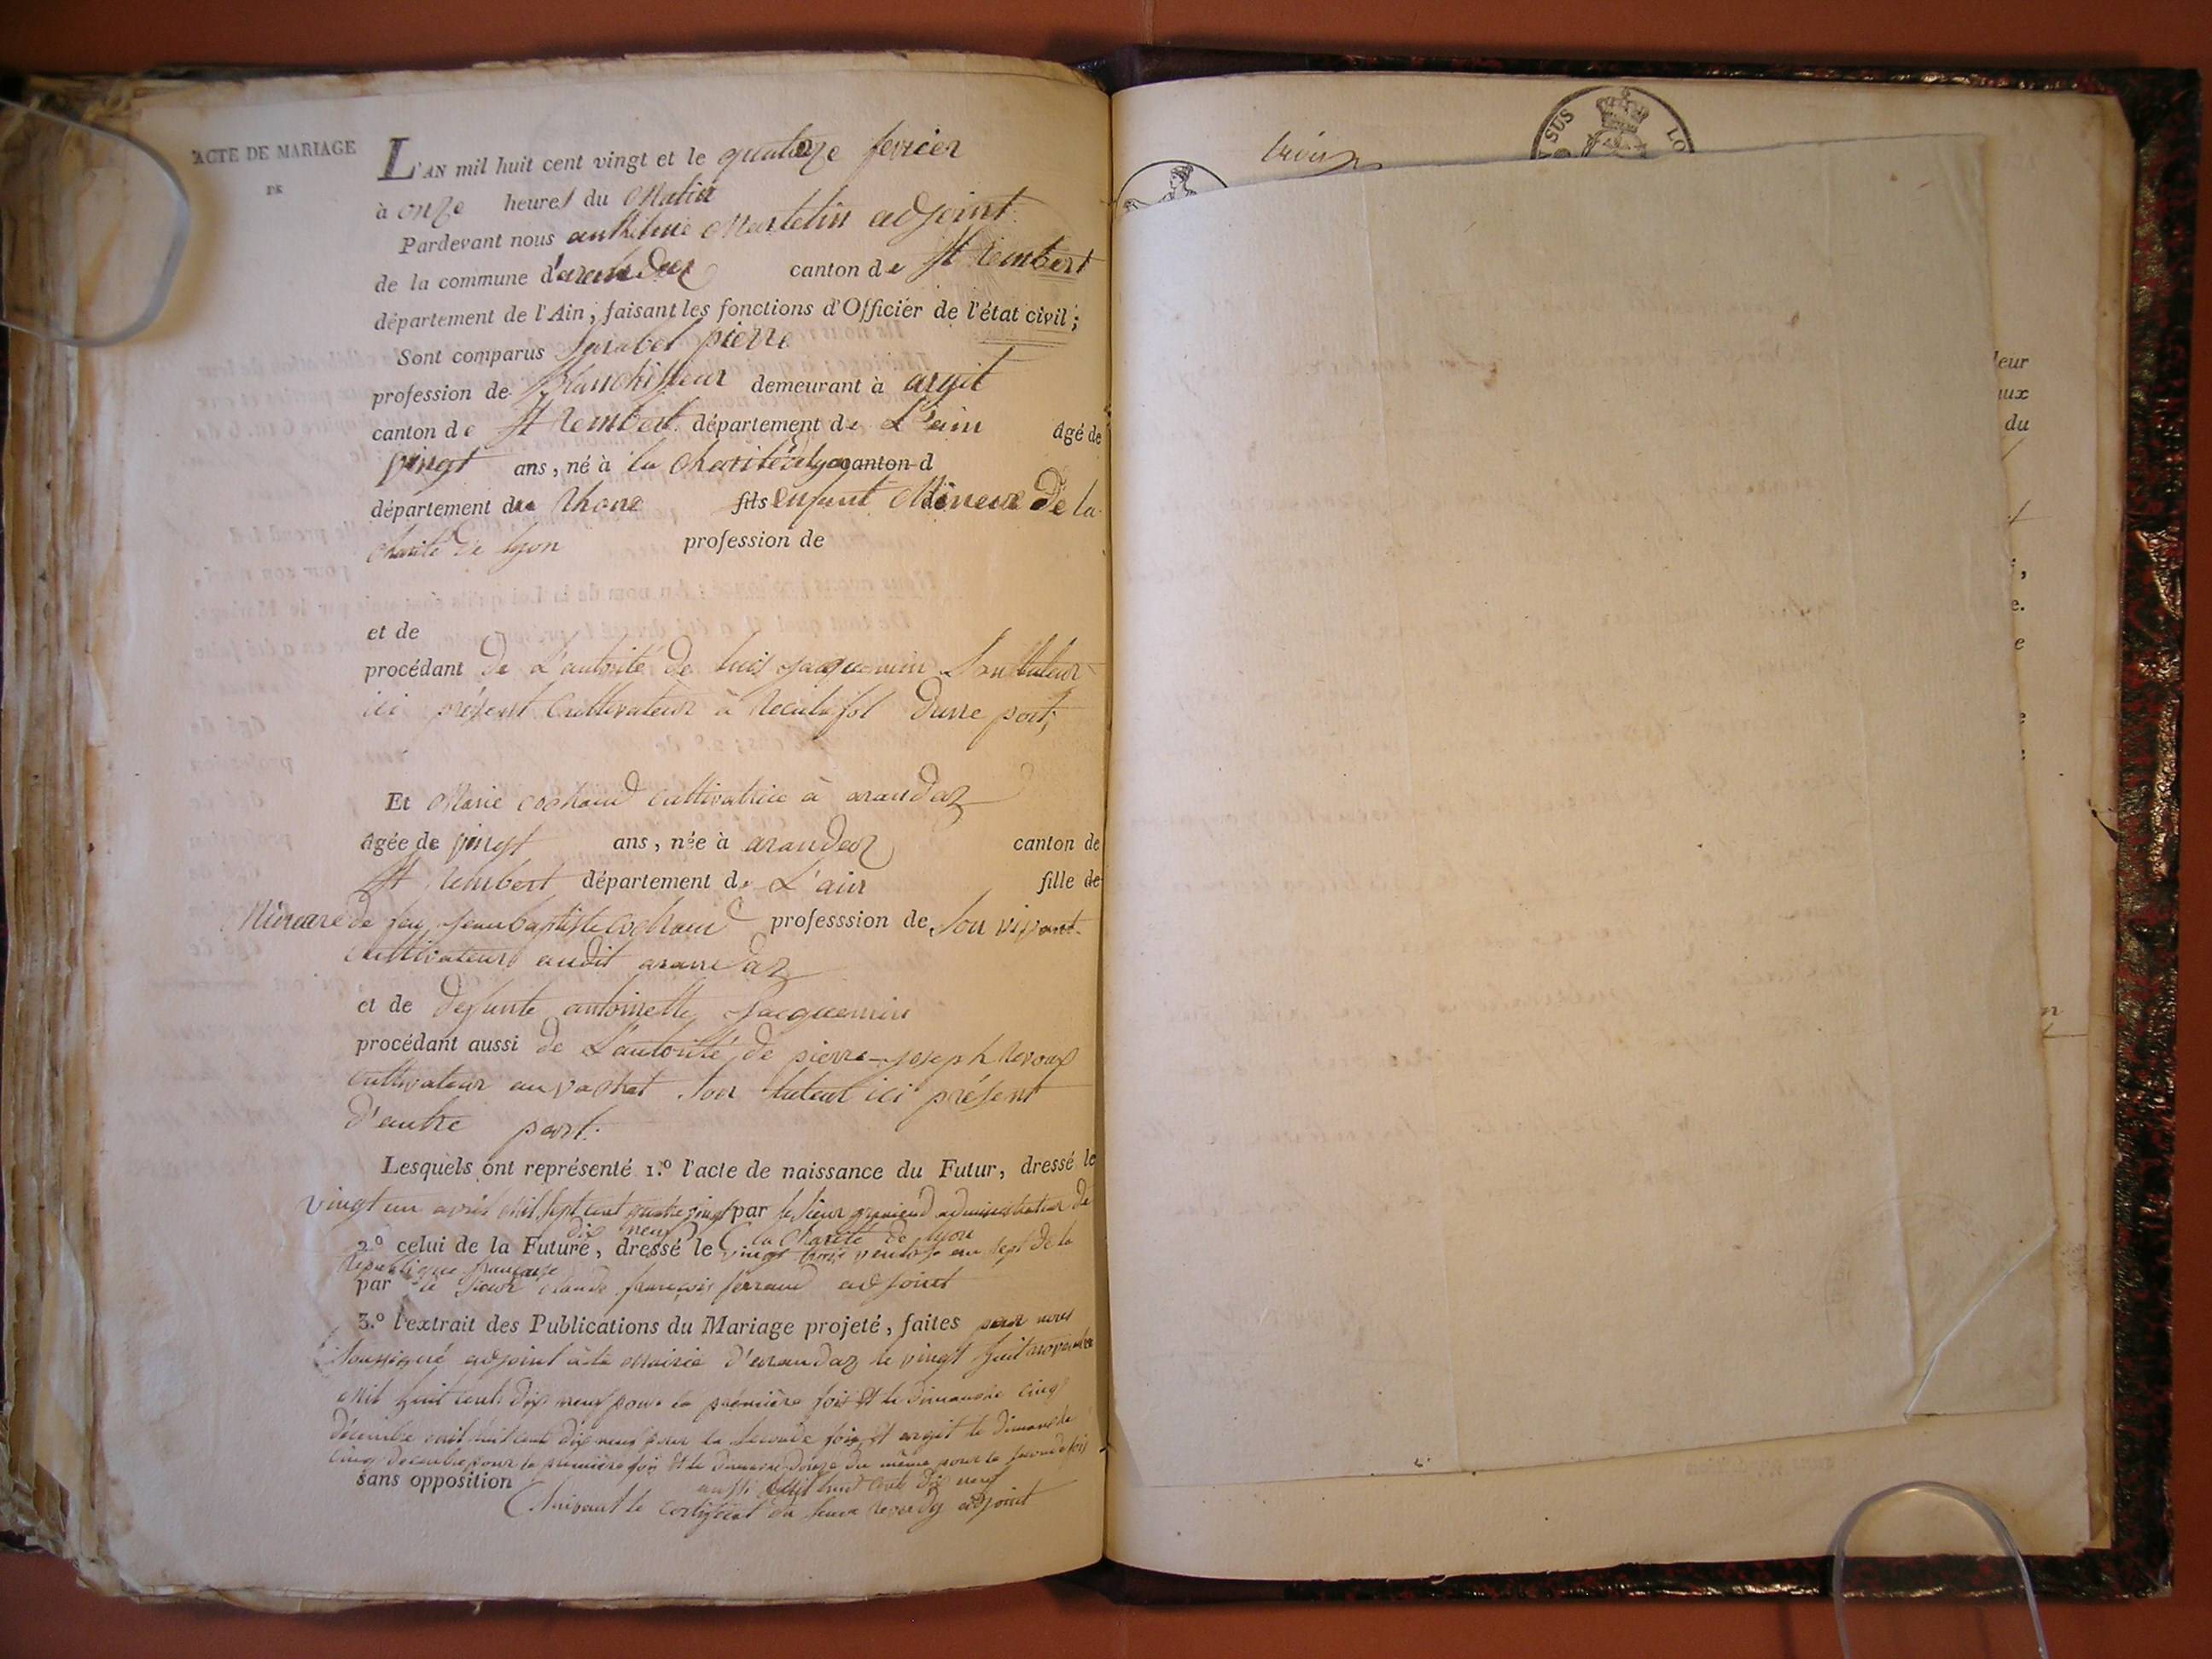 ACTE DE MARIAGE
DE
L'AN mil huit cent vingt et le quatorze fevrier
à onze heures du Matin
Pardevant nous anthelme Martelin adjoint
de la commune d'arandaz canton de St Rembert
département de l'Ain, faisant les fonctions d'Officier de l'état civil;
Sont comparus pierre
profession de Blanchisseur demeurant à argit
canton de St Rembert département de L'ain âgé de
vingt ans, né à la charité de lyon canton d
département du Rhone fils enfant Mineur De la
charité De lyon profession de
et de
procédant De L'autorité De Luis Jacquemin Son tuteur
ici présent Cultivateur à Reculafol D'une part,
Et Marie cochaud cultivatrice à arandaz
âgée de vingt ans, née à arandaz canton de
St Rembert département de L'ain fille de
Mineure de feu Jean baptiste cochaud professsion de Son vivant
cultivateur audit arandaz
et de defunte antoinette Jacquemin
procédant aussi de L'autorité de pierre-joseph Revoux
cultivateur au vachat Son tuteur ici présent
D'autre part.
Lesquels ont représenté 1.º l'acte de naissance du Futur, dressé le
vingt un avril Mil sept cent quatre vingt par le Sieur administrateur De
dix neuf la Charité de lyon
2.º celui de la Future, dressé le vingt trois ventose an sept de la
République française
par le Sieur claude françois ferrand adjoint
3.º l'extrait des Publications du Mariage projeté, faites par nous
soussigné adjoint à la Mairie D'arandaz le vingt huit novembre
Mil huit cents dix neuf pour la première fois et le Dimanche cinq
Décembre mil huit cent dix neuf pour la seconde fois et argit le dimanche
cinq decembre pour la première fois et le dimanche Douze du même pour la seconde fois
sans opposition aussi Mil huit cent dix neuf
Suivant le certificat du Sieur Reverdy adjoint
trois
SUS LO
leur
aux
du